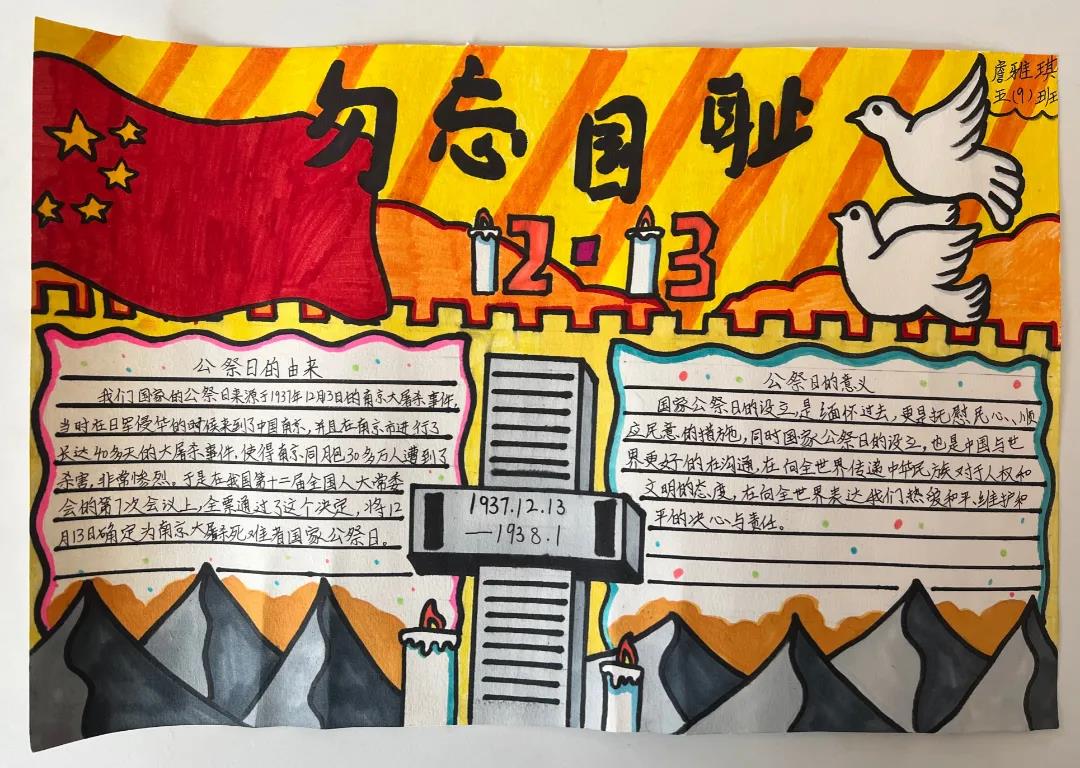 勿忘国耻
詹雅琪
五(9)班
12·13
公祭日的由来
我们国家的公祭日来源于1937年12月3日的南京大屠杀事件,
当时在日军侵华的时候来到了中国南京,并且在南京市进行了
长达40多天的大屠杀事件,使得南京同胞30多万人遭到了
杀害,非常惨烈。于是在我国第十二届全国人大常委
会的第7次会议上,全票通过了这个决定,将12
月13日确定为南京大屠杀死难者国家公祭日。
1937.12.13
—1938.1
公祭日的意义
国家公祭日的设立,是缅怀过去,更是抚慰民心、顺
应民意的措施,同时国家公祭日的设立,也是中国与世
界更好的在沟通,在向全世界传递中华民族对于人权和
文明的态度,在向全世界表达我们热爱和平、维护和
平的决心与责任。